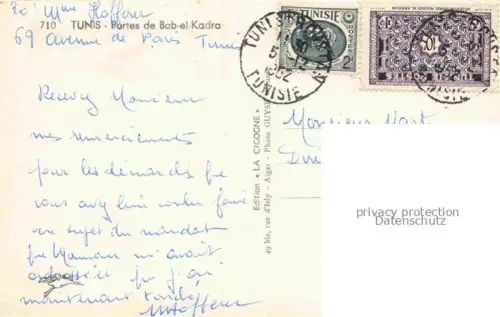 Ex Mme Hofferer
710 TUNIS - Portes de Bab-el-Kadra
69 Avenue de Paris Tunis
TUNISIE
2F
TUNIS
TUNISIE
Recevez Monsieur
mes remerciements
pour les démarches que
vous avez bien voulu faire
au sujet du mandat
que Maman m'avait
adressé et que j'ai
maintenant touché
MHofferer
Edition « LA CICOGNE »
49 bis, rue d'Isly - Alger - Photo GUYS
Monsieur
privacy protection
Datenschutz